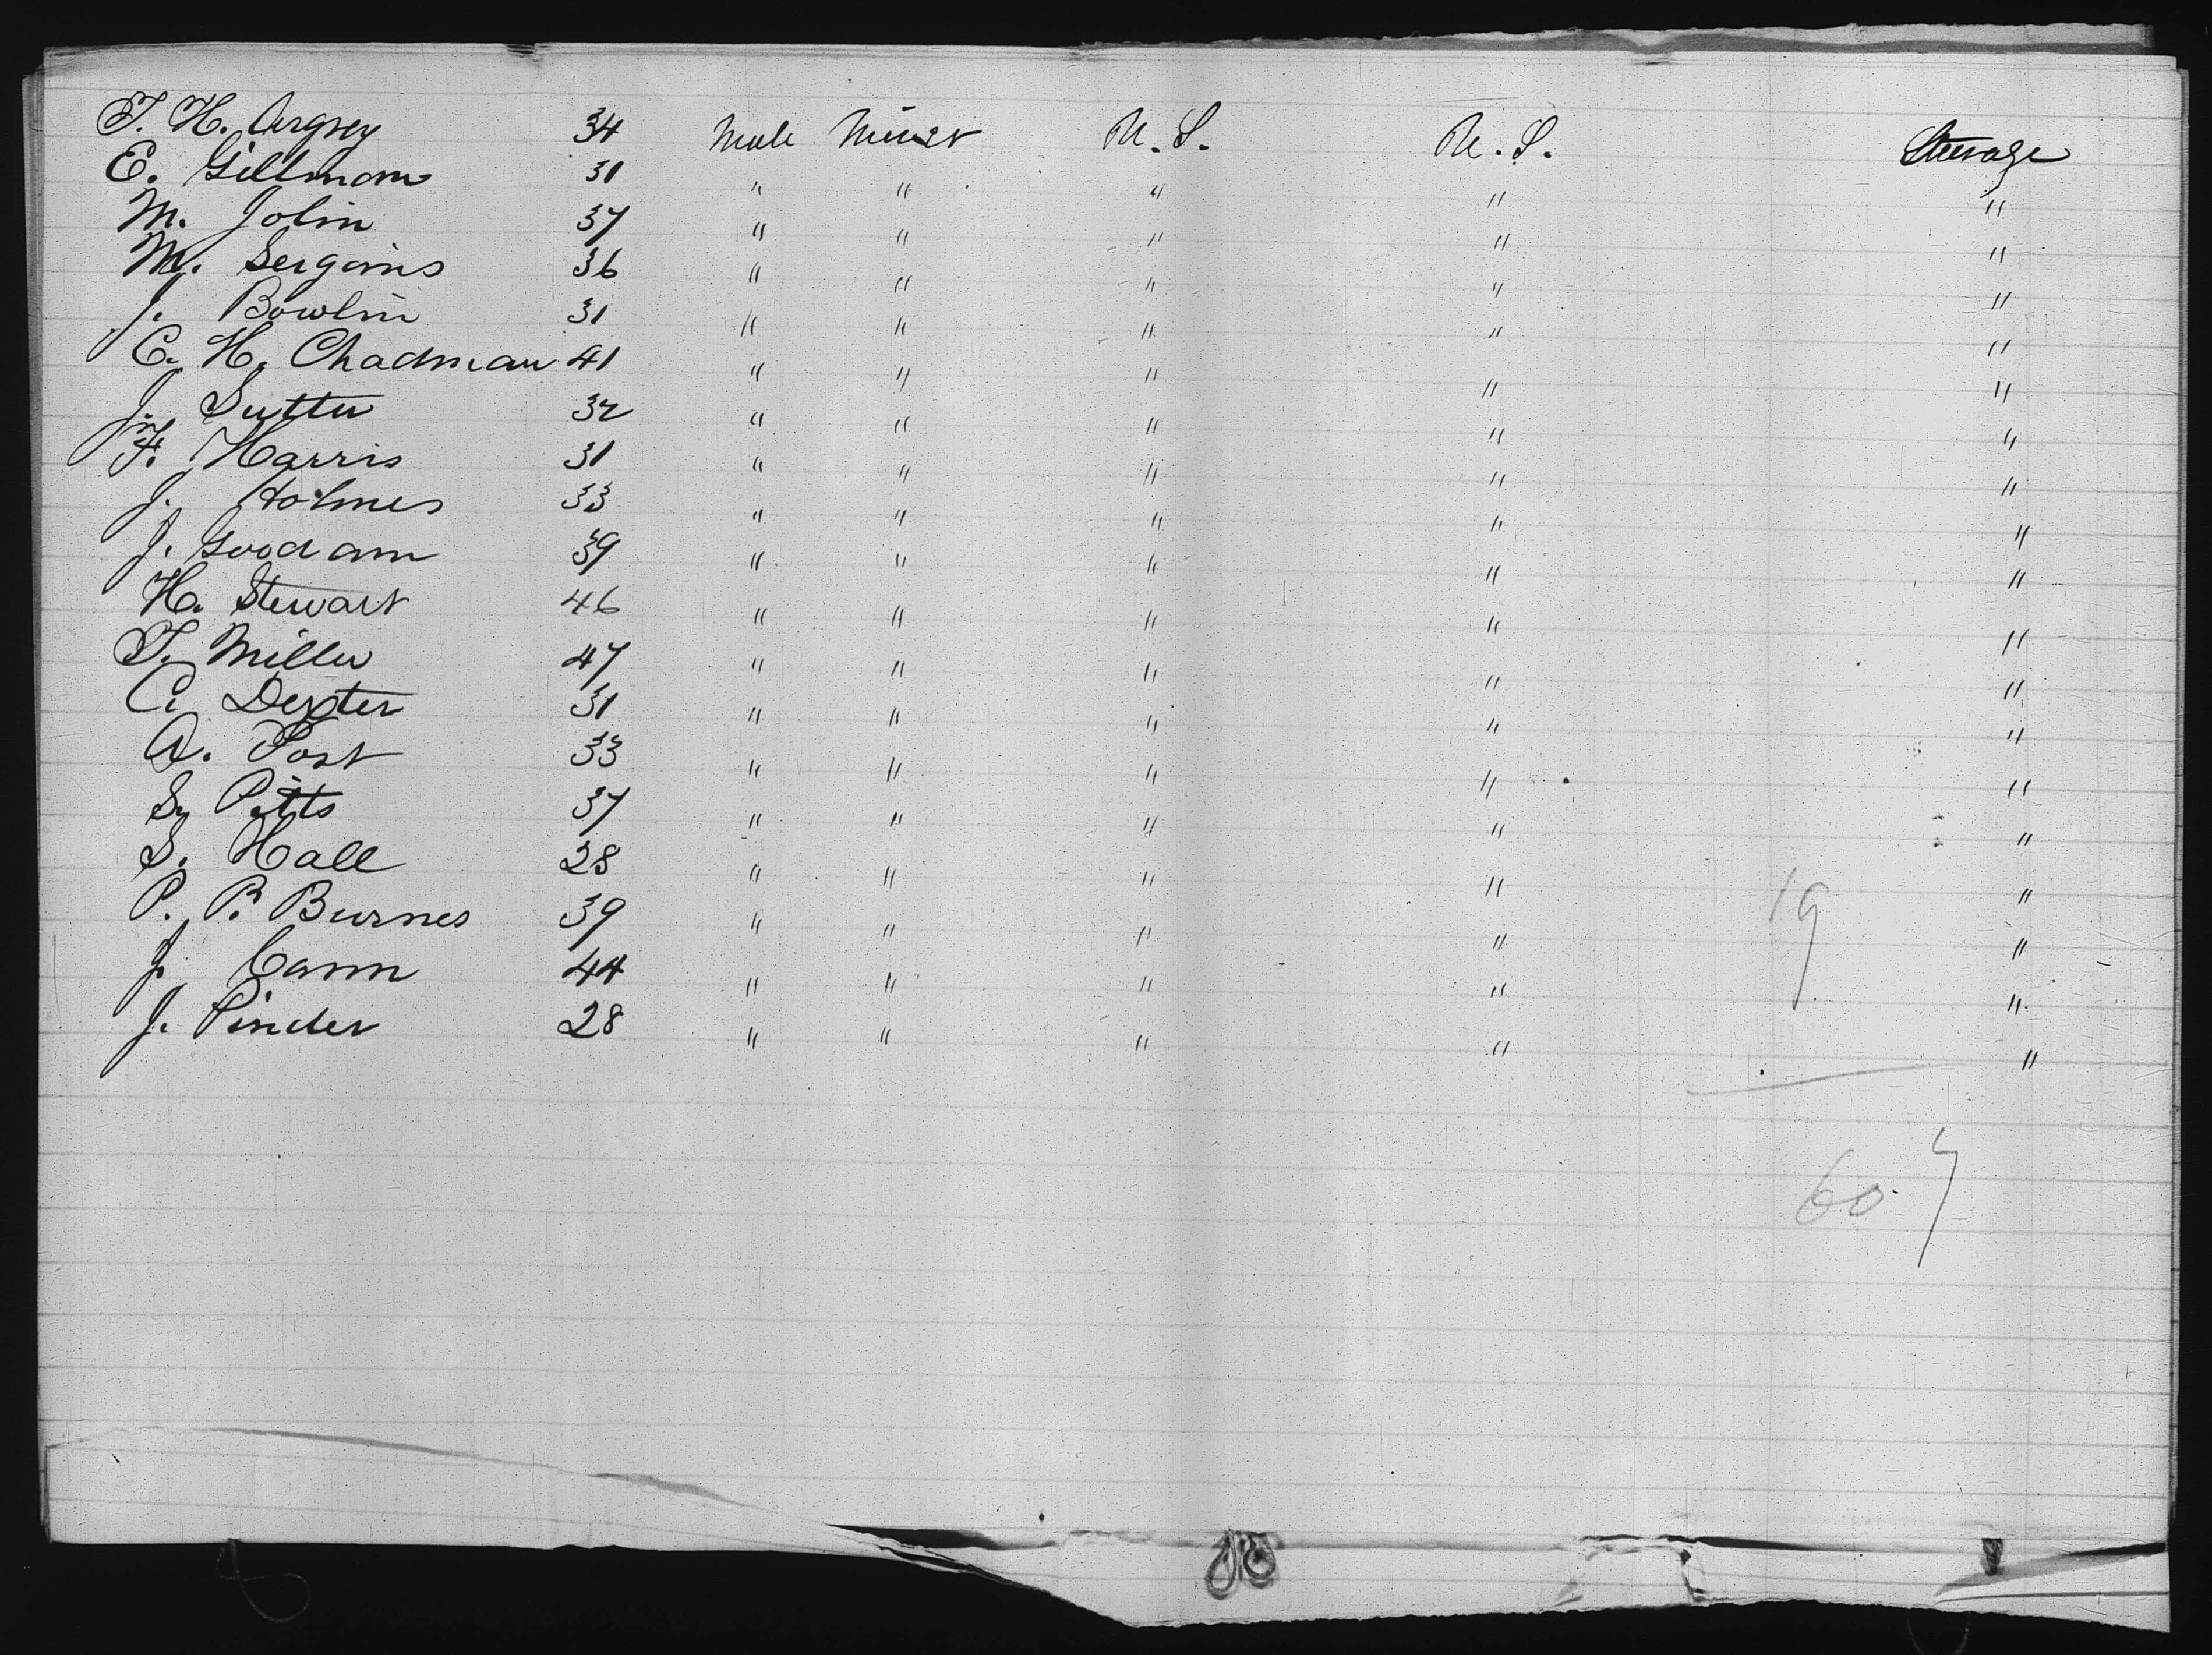 T. H. Argsey 34 Male Miner U.S. U.S. Steerage
E. Gillman 31 " " " " "
M. Jolin 37 " " " " "
M. Sergoins 36 " " " " "
J. Bowlin 31 " " " " "
C. H. Chadman 41 " " " " "
J. Sutter 32 " " " " "
F. Harris 31 " " " " "
J. Holmes 33 " " " " "
J. Goodam 39 " " " " "
H. Stewart 46 " " " " "
T. Miller 47 " " " " "
C. Dexter 31 " " " " "
A. Post 33 " " " " "
S. Pitts 37 " " " " "
S. Hall 28 " " " " "
P. P. Burnes 39 " " " " "
J. Cann 44 " " " " "
J. Pinder 28 " " " " "
19
607